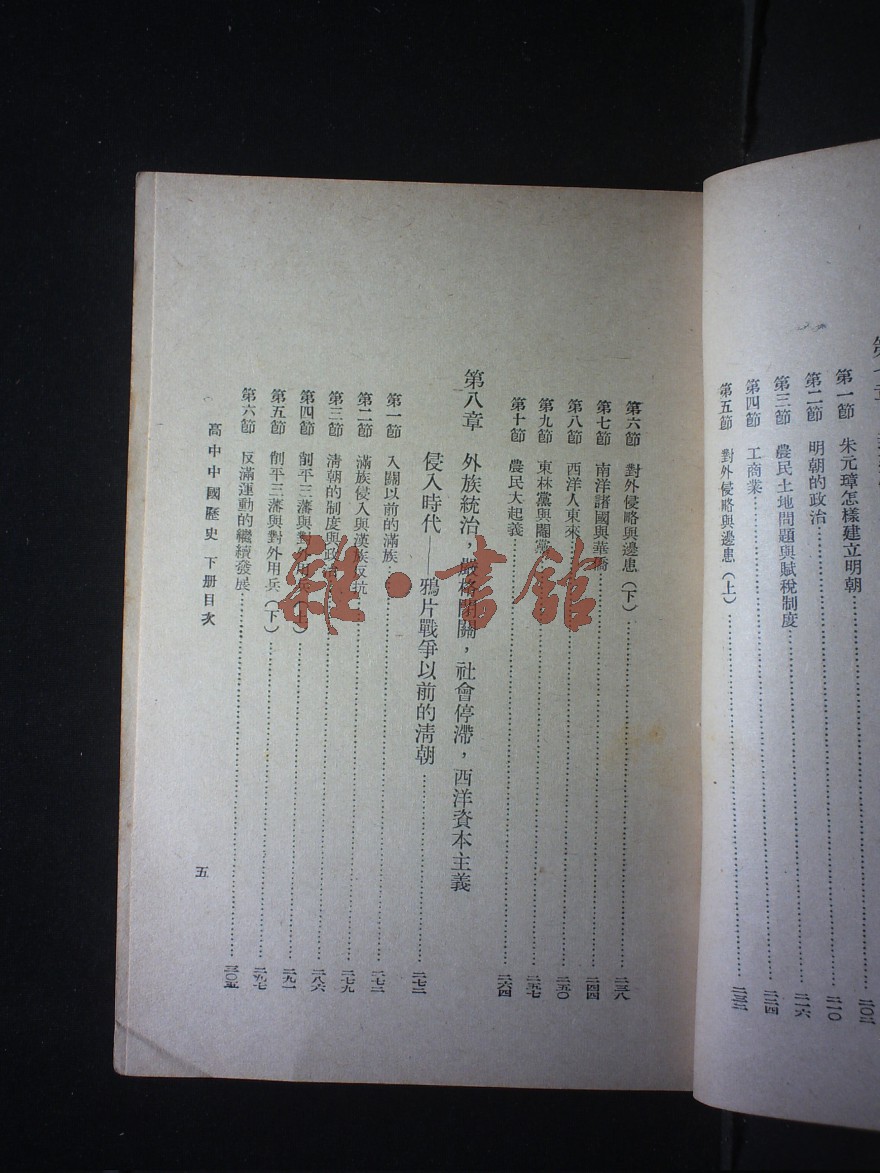 第一節 朱元璋怎樣建立明朝 二〇二
第二節 明朝的政治 二一〇
第三節 農民土地問題與賦稅制度 二一六
第四節 工商業 二二四
第五節 對外侵略與邊患(上) 二三二
第六節 對外侵略與邊患(下) 二三八
第七節 南洋諸國與華僑 二四四
第八節 西洋人東來 二五〇
第九節 東林黨與閹黨 二五七
第十節 農民大起義 二六四
第八章 外族統治,嚴格閉關,社會停滯,西洋資本主義
侵入時代——鴉片戰爭以前的清朝 二七二
第一節 入關以前的滿族 二七二
第二節 滿族侵入與漢族反抗 二七九
第三節 清朝的制度與政治 二八六
第四節 削平三藩與對外用兵(上) 二九一
第五節 削平三藩與對外用兵(下) 二九七
第六節 反滿運動的繼續發展 三〇五
高中中國歷史 下册目次
五
雜·書館